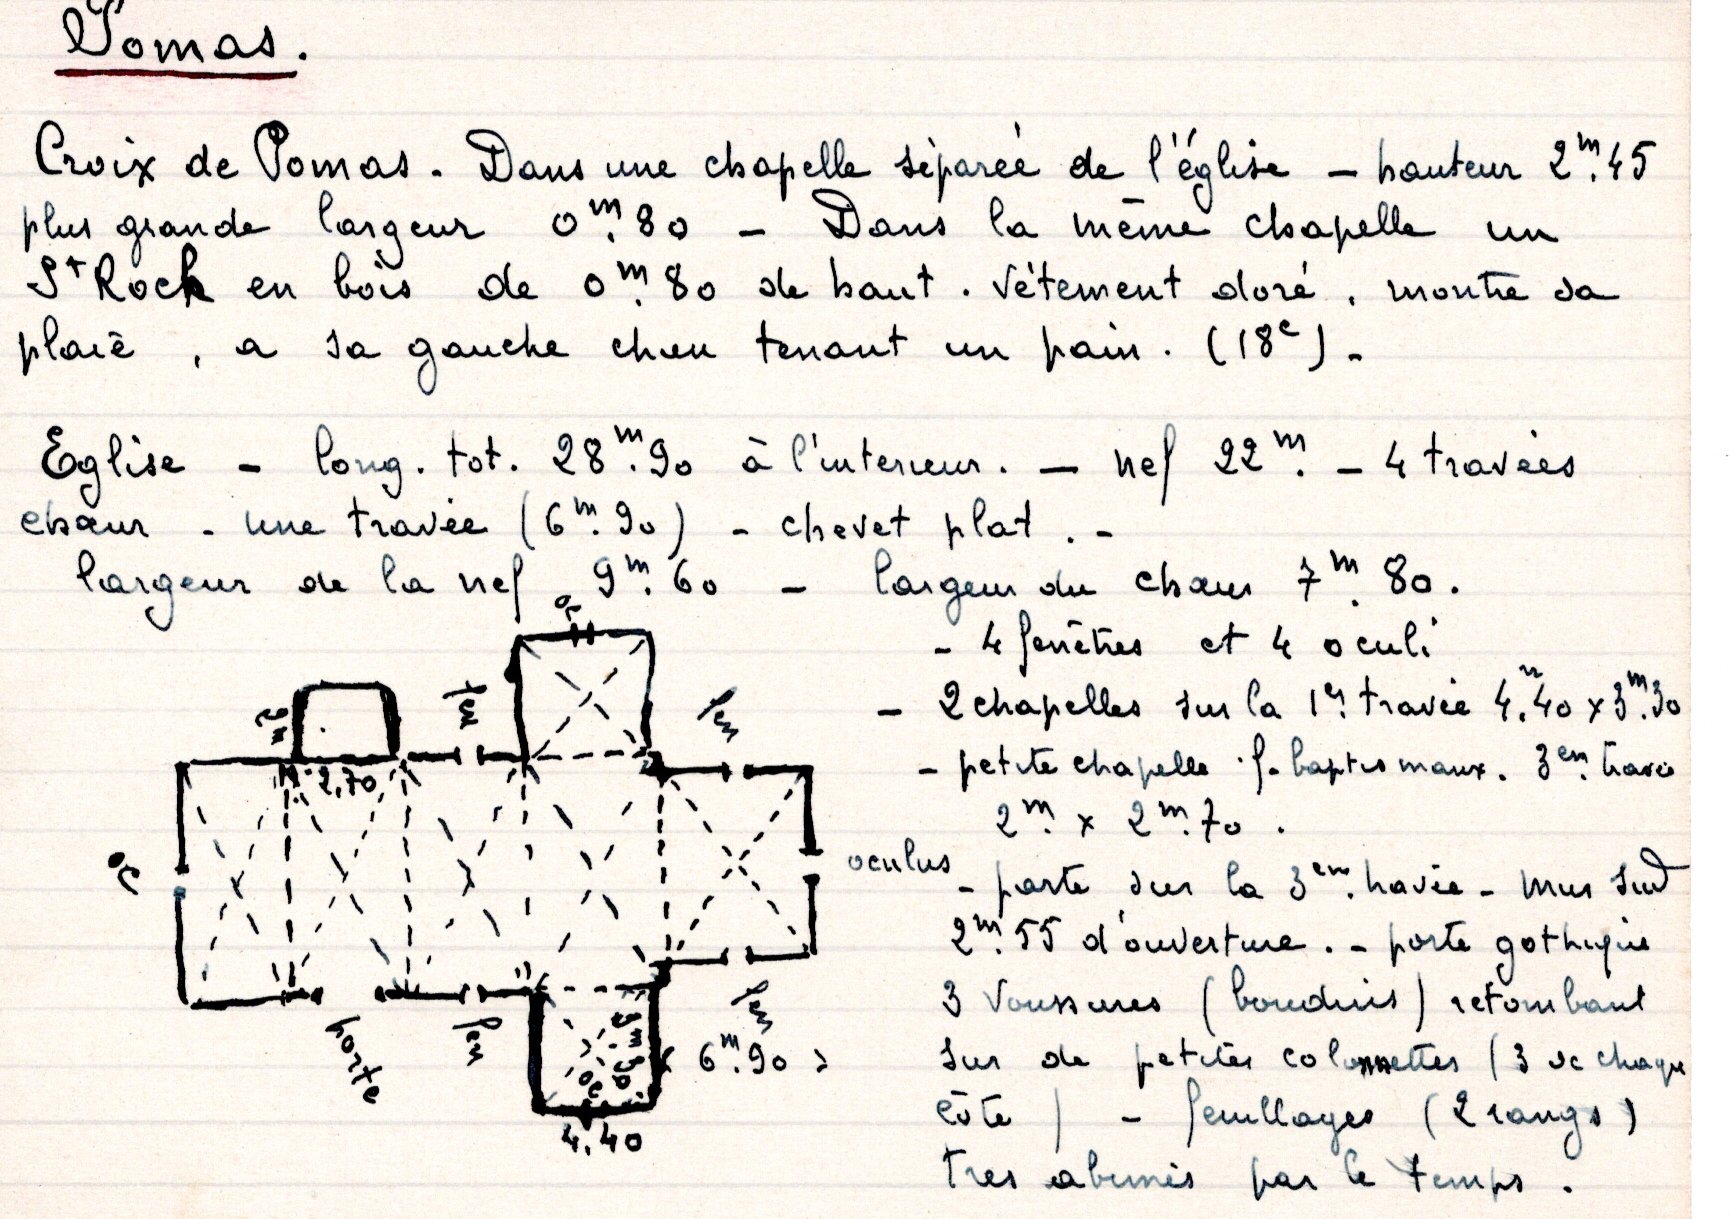 Pomas.
Croix de Pomas. Dans une chapelle séparée de l'église - hauteur 2m.45
plus grande largeur 0m.80 - Dans la même chapelle un
St Roch en bois de 0m.80 de haut. Vêtement doré, montre sa
plaie, a sa gauche chien tenant un pain. (18e) -
Eglise - long. tot. 28m.90 à l'interieur. - nef 22m. - 4 travées
chœur - une travée (6m.90) - chevet plat. -
largeur de la nef 9m.60 - largeur du chœur 7m.80.
- 4 fenêtres et 4 oculi
- 2 chapelles sur la 1er. travée 4m.40 x 3m.30
- petite chapelle f. baptismaux. 3em. travée
2m. x 2m.70.
- porte sur la 3em. travée - mur sud
2m.55 d'ouverture. - porte gothique
3 voussures (boudins) retombant
sur de petites colonnettes (3 de chaque
côté) - feuillages (2 rangs)
tres abimés par le temps.
oc
fen
fen
2m
2,70
oc
oculus
porte
fen
fen
3m.30
oc
6m.90
4,40